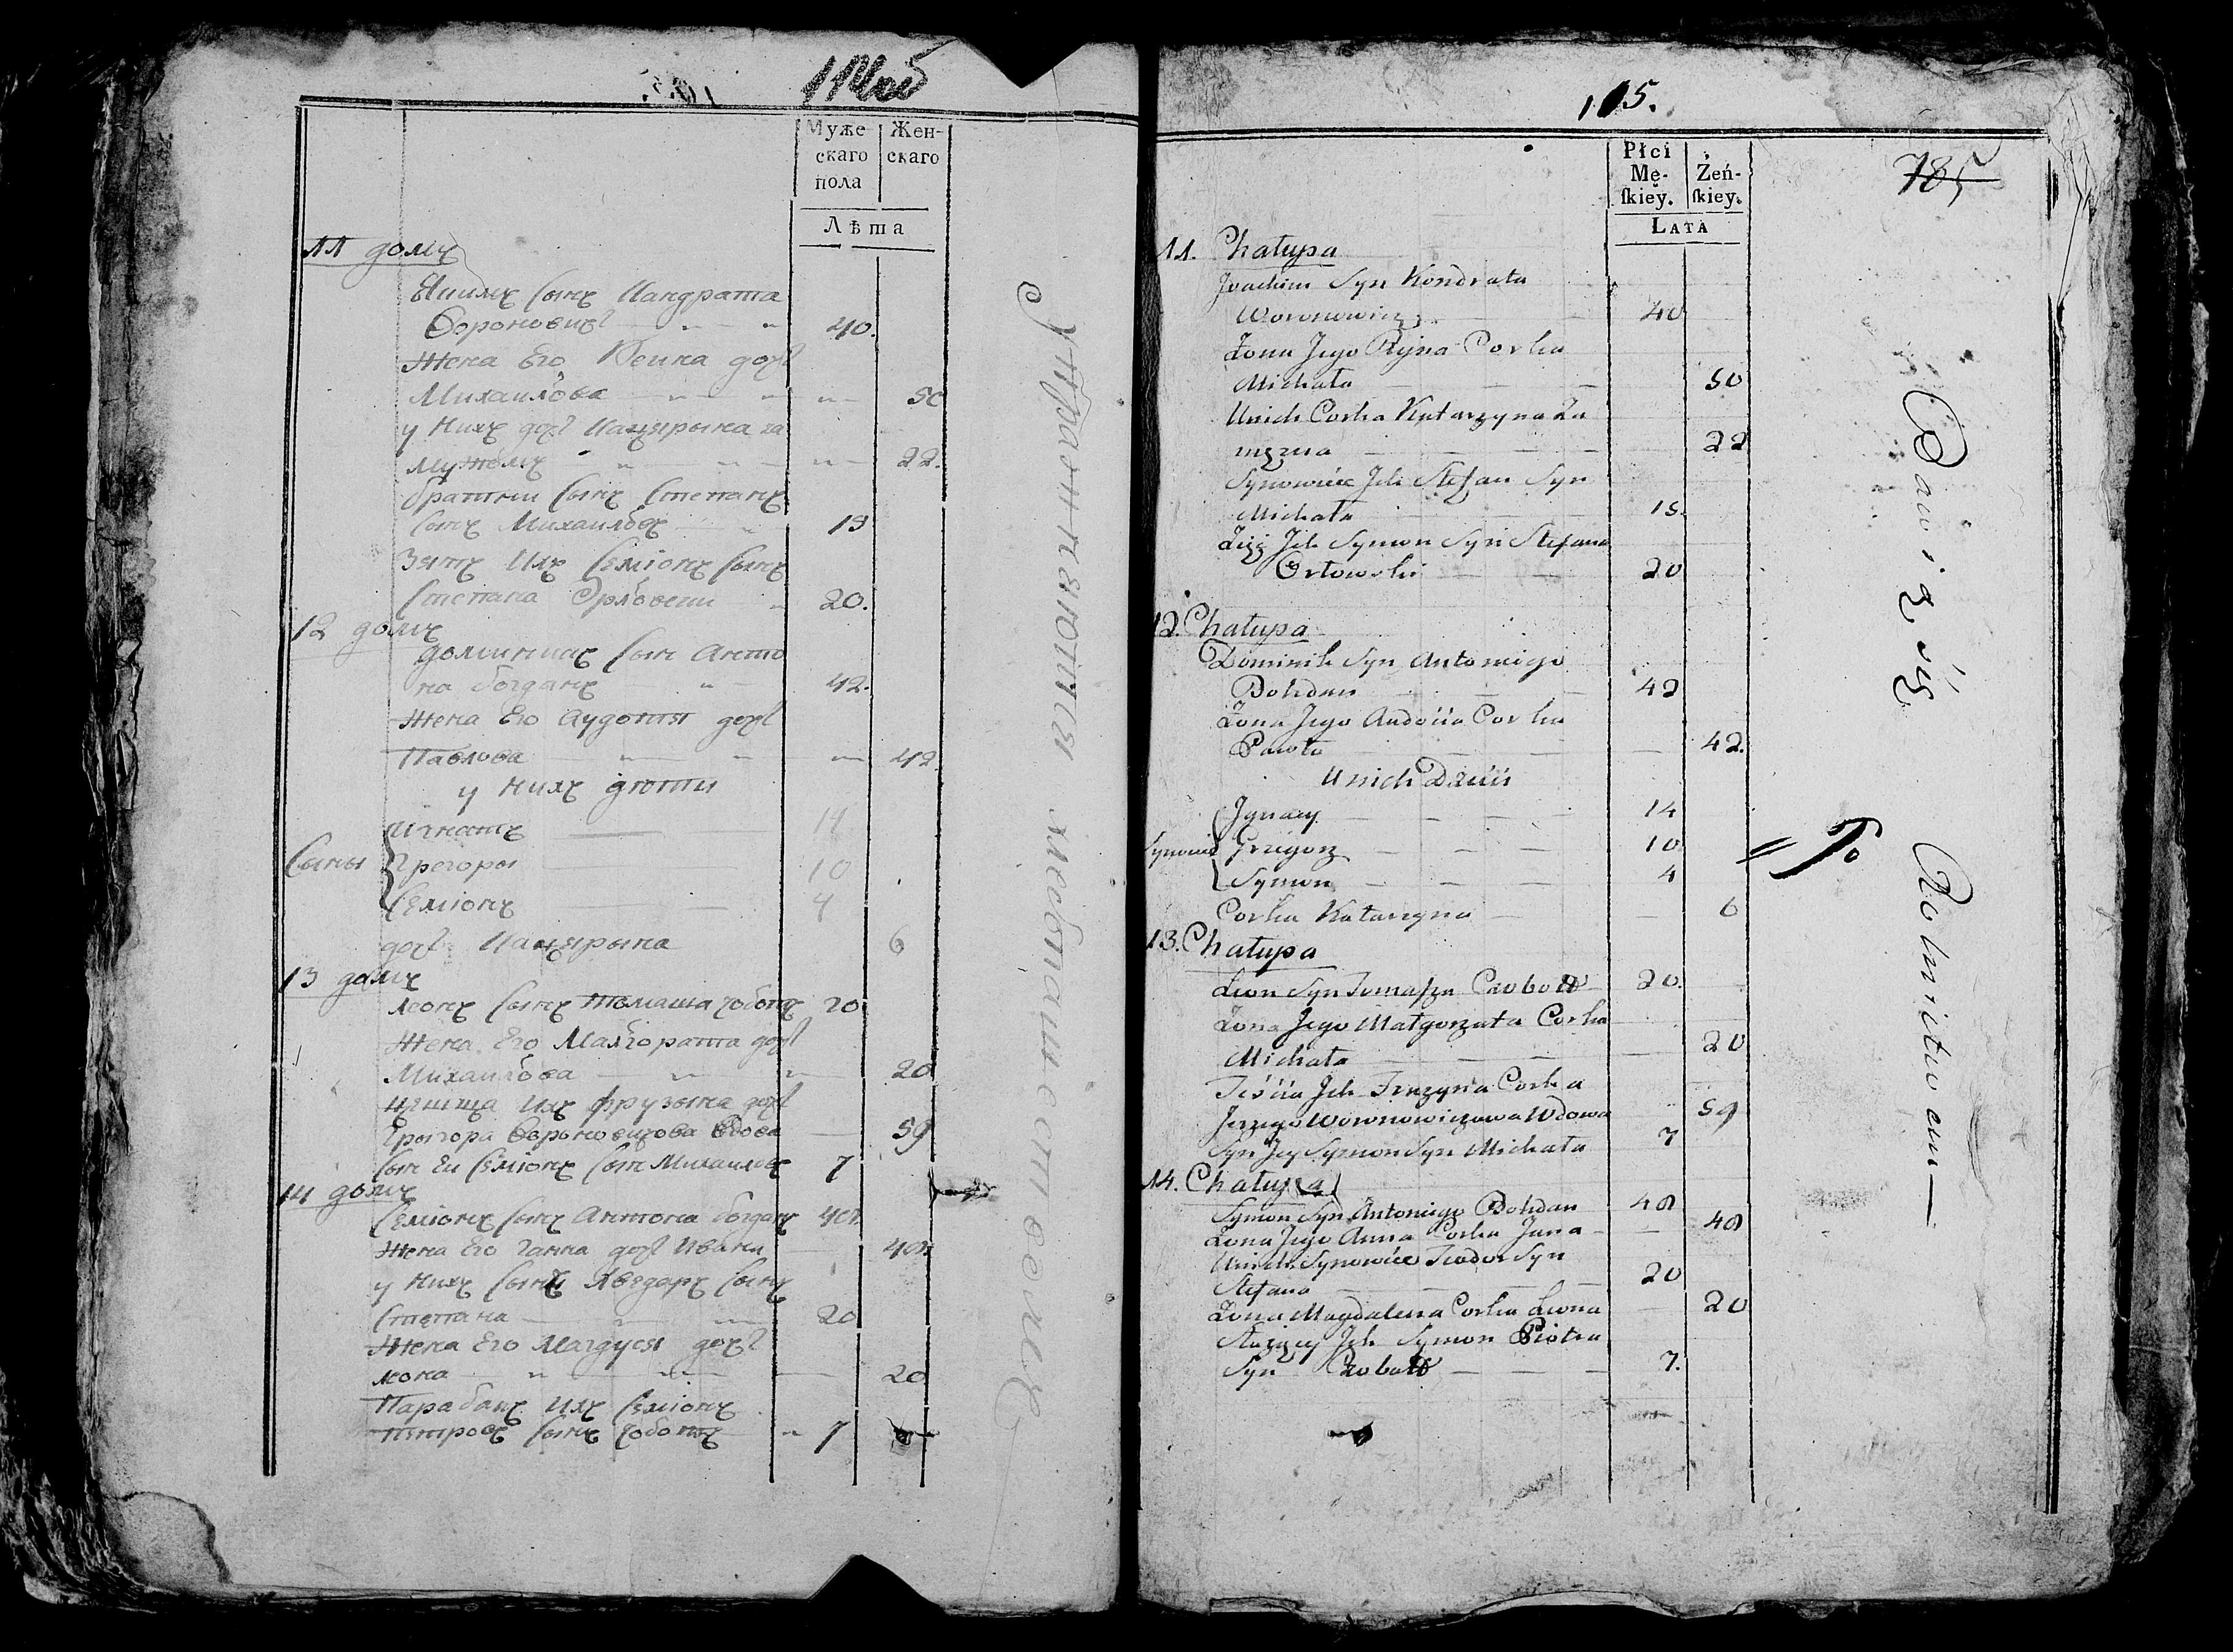 114об
Муже
скаго
пола
Жен-
скаго
Лѣта
11 домъ
Якимъ сынъ Кандрата
Вороновичъ 40.
Жена Его Реина дочь
Михаилова 50
у нихъ дочь Кацярына за
мужемъ 22.
братнии сынъ Степанъ
сынъ Михаиловъ 15
Зять ихъ Семіонъ сынъ
Степана Орловски 20.
12 домъ
Доминикъ сын Анто
на Богданъ 42.
Жена Его Аудотья дочь
Павлова 42
у нихъ дѣти
Игнатъ 14
Сыны Грегоры 10
Семіонъ 4
дочь Кацярына 6
13 домъ
Леонъ сынъ Томаша Чоботъ 20
Жена Его Малгората дочь
Михаилова 20
их Фрузына дочь
Грыгора Вороновичова Вдова 59
сын Еи Семіонъ сын Михаиловъ 7
14 домъ
Семіонъ сынъ Антона Богданъ 48
Жена Его Ганна дочь Ивана 48
у нихъ сынъ Хведаръ сынъ
Степана 20
Жена Его Магдуся дочь
Леона 20
Парабакъ ихъ Семіонъ
Петровъ сынъ Чоботъ 7
105.
785
Płci
Mę-
ſkiéy.
Żeń-
ſkiey.
LATA
11. Chałupa
Joachim Syn Kondrata
Woronowicz 40
Żona Jego Ryina Corka
Michała 50
Unich Corka Katarzyna Za
mężna 22
Synowiec Jch Stefan Syn
Michała 15.
Zięć Jch Symon Syn Stefana
Orłowski 20
12. Chałupa
Dominik Syn Antoniego
Bohdan 42
Żona Jego Audocia Corka
Pawła 42.
Unich Dzieci
Jgnacy 14
Synowie Grzegorz 10
Symon 4
Corka Katarzyna 6
13. Chałupa
Leon Syn Tomaſza Czobott 20.
Żona Jego Małgorzata Corka
Michała 20
Teścia Jch Fruzyna Corka
Jerzego Woronowiczowa Wdowa 59
Syn Jey Symon Syn Michała 7
14. Chałupa
Symon Syn Antoniego Bohdan 48
Żona Jego Anna Corka Jana 48
Unich Synowiec Teodor Syn
Stefana 20
Żona Magdalena Corka Leona 20
Służący Jch Symon Piotra
Syn Czobott 7.